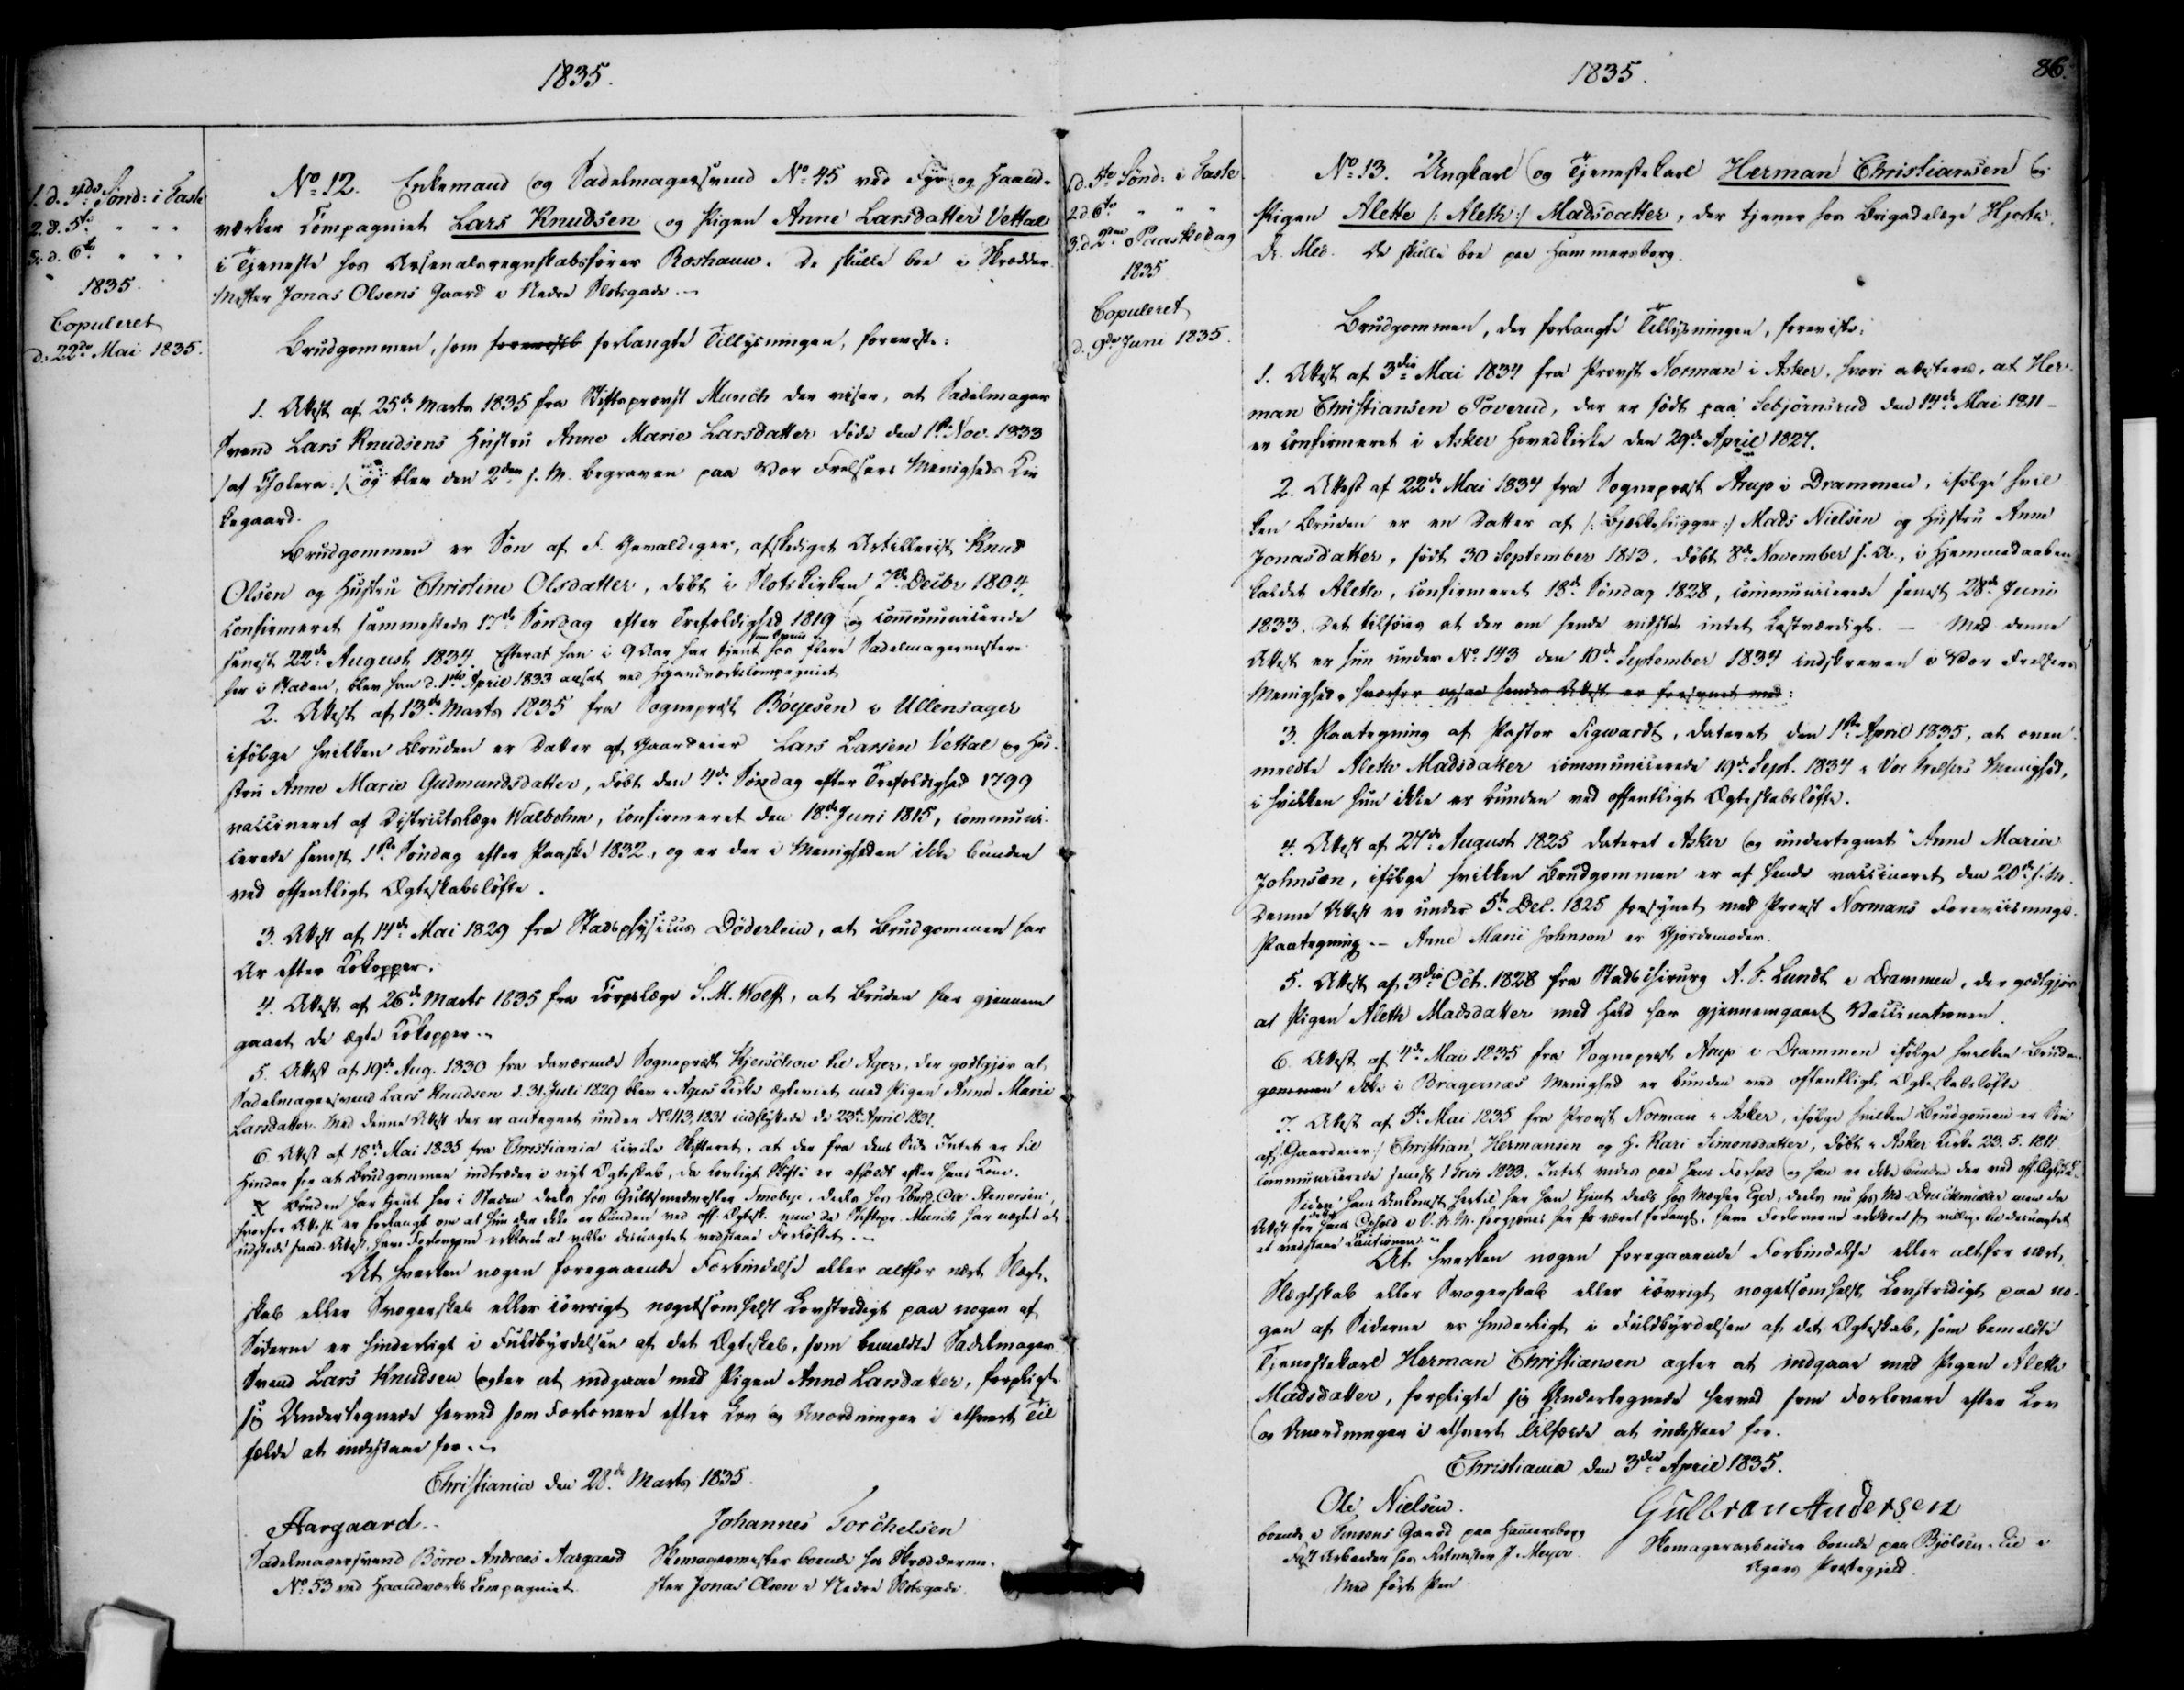 1835.
1. d. 4de Sönd: i Faste
2. d. 5te " " "
3. d. 6te " " "
1835.
Copuleret
d. 22de Mai 1835.
No 12. Enkemand og Sadelmagersvend No 45 ved Fyr og Haand-
værker Compagniet Lars Knudsen og Pigen Anne Larsdatter Vettal
i Tjeneste hos Arsenalsregnskabsförer Roshauw. De skulle boe i Skrædder
Mester Jonas Olsens Gaard i Nedre Slotsgade. —
Brudgommen, som foreviste forlangte Tillysningen, foreviste:
1. Attest af 25de Marts 1835 fra Stiftsprovst Munch der viser, at Sadelmager
Svend Lars Knudsens Hustru Anne Marie Larsdatter döde den 1ste Nov. 1833
/af Cholera:/ og blev den 2den s. M. begraven paa Vor Frelsers Menigheds Kir
kegaard.
Brudgommen er Sön af F. Gevaldiger, afskediget Artillerist Knud
Olsen og Hustru Christine Olsdatter, döbt i Slotskirken 7de Decbr 1804,
confirmeret sammesteds 17de Söndag efter Trefoldighed 1819 og communicerede
senest 22de August 1834. Efterat han i 9 Aar har tjent som Svend hos flere Sadelmagermestere
her i Staden, blev han d. 1ste April 1833 ansat ved Haandværkscompagniet
2. Attest af 13de Marts 1835 fra Sognepræst Böyesen i Ullensager
ifölge hvilken Bruden er Datter af Gaardeier Lars Larsen Vettal og Hu-
stru Anne Marie Gudmundsdatter, döbt den 4de Söndag efter Trefoldighed 1799
vaccineret af Districtslæge Walbohm, confirmeret den 18de Juni 1815, communi-
cerede senest 1ste Söndag efter Paaske 1832, og er der i Menigheden ikke bunden
ved offentligt Ægteskabslöfte.
3. Attest af 14de Mai 1829 fra Stadsphysicus Döderlein, at Brudgommen har
Ar efter Kokopper.
4. Attest af 26de Marts 1835 fra Corpslæge S. M. Wolff, at Bruden har gjennem
gaaet de ægte Kokopper. —
5. Attest af 19de Aug. 1830 fra daværende Sognepræst Kjerschow til Ager, der godtgjör at
Sadelmagersvend Lars Knudsen d. 31 Juli 1829 blev i Agers Kirke ægteviet med Pigen Anne Marie
Larsdatter. Med denne Attest der er antegnet under No 113, 1831 indflyttede de 23de April 1831.
6. Attest af 18de Mai 1835 fra Christiania civile Skifteret, at der fra dens Side Intet er til
Hinder for at Brudgommen indtræder i nyt Ægteskab, da lovligt Skifte er afholdt efter hans Kone.
Bruden har tjent her i Staden deels hos Guldsmedmester Tmobye, deels hos
hvorfor Attest er forlangt om at hun der ikke er bunden ved off. Ægtesk. men da Stiftspr. Munch har nægtet at
udstede saad. Attest, have Forloverne erklæret at ville desuagtet vedstaae Forlöftet. —
At hverken nogen foregaaende Forbindelse eller altfor nært Slægt-
skab eller Svogerskab eller iövrigt nogetsomhelst Lovstridigt paa nogen af
Siderne er hinderligt i Fuldbyrdelsen af det Ægteskab, som bemeldte Sadelmager
Svend Lars Knudsen agter at indgaae med Pigen Anne Larsdatter, forpligte
sig Undertegnede herved som Forlovere efter Lov og Anordninger i ethvert Til
fælde at indestaae for. —
Christiania den 28de Marts 1835.
Aargaard
Sadelmagersvend Börre Andreas Aargaard
No 53 ved Haandværks Compagniet
Johannes Torchelsen
Skomagermester boende hos Skrædderme-
ster Jonas Olsen i Nedre Slotsgade.
1835.
86.
1. d. 5te Sönd: i Faste
2. d. 6te " " "
3. d. 2den Paaskedag
1835
Copuleret
d. 9de Juni 1835.
No 13. Ungkarl og Tjenestekarl Herman Christiansen og
Pigen Alette /: Aleth:/ Madsdatter, der tjener hos Brigadelæge Hjorth
Dr. Med. De skulle boe paa Hammersborg.
Brudgommen, der forlangte Tillysningen, foreviste:
1. Attest af 3die Mai 1834 fra Provst Norman i Asker, hvori attesteres, at Her-
man Christiansen Toverud, der er födt paa Sebjörnsrud den 14de Mai 1811 —
er confirmeret i Asker Hovedkirke den 29de April 1827.
2. Attest af 22de Mai 1834 fra Sognepræst Arup i Drammen, ifölge hvil
ken Bruden er en Datter af /: Bjælkehugger:/ Mads Nielsen og Hustru Anne
Jonasdatter, födt 30 September 1813, döbt 8de November s. A., i Hjemmedaaben
kaldet Aleth, confirmeret 18de Söndag 1828, communicerede senest 28de Juni
1833. Det tilföies at der om hende vidstes intet Lastværdigt. — Med denne
Attest er hun under No 143 den 10de September 1834 indskreven i Vor Frelsers
Menighed, hvorfor ogsaa hendes Attest er forsynet med:
3. Paategning af Pastor Sigwardt, dateret den 1ste April 1835, at oven-
meldte Aleth Madsdatter communicerede 19de Sept. 1834 i Vor Frelsers Menighed,
i hvilken hun ikke er bunden ved offentligt Ægteskabslöfte.
4. Attest af 27de August 1825 dateret Asker og undertegnet "Anne Maria
Johnson, ifölge hvilken Brudgommen er af hende vaccineret den 20de s. M.
Denne Attest er under 5te Dec. 1825 forsynet med Provst Normans Foreviisnings-
Paategning. — Anne Marie Johnson er Gjordemoder.
5. Attest af 3die Oct. 1828 fra Stadschirurg A. F. Lundt i Drammen, der godtgjör
at Pigen Aleth Madsdatter med Held har gjennemgaaet Vaccinationen.
6. Attest af 4de Mai 1835 fra Sognepræst Arup i Drammen ifölge hvilken Bruden
gommen ikke i Bragernæs Menighed er bunden ved offentligt Ægteskabslöfte
7. Attest af 5te Mai 1835 fra Provst Norman i Asker, ifölge hvilken Brudgommen er Sön
af /Gaardeier:/ Christian Hermansen og H. Kari Simonsdatter, döbt i Asker Kirke 23. 5. 1811
communicerede senest 1833. Intet vides paa hans Forhold og han er ikke bunden der ved off. Ægtesk.
Siden hans Ankomst hertil har han tjent deels hos Mægler Eger, deels nu hos men da
Attest for hans Ophold i V. F. M. forgjæves har været forlangt, have Forloverne erklæret sig villige til desuagtet
at vedstaae Cautionen. —
At hverken nogen foregaaende Forbindelse eller altfor nært
Slægtskab eller Svogerskab eller iövrigt nogetsomhelst Lovstridigt paa no-
gen af Siderne er hinderligt i Fuldbyrdelsen af det Ægteskab, som bemeldte
Tjenestekarl Herman Christiansen agter at indgaae med Pigen Aleth
Madsdatter, forpligte sig Undertegnede herved som Forlovere efter Lov
og Anordninger i ethvert Tilfælde at indestaae for.
Christiania den 3die April 1835.
Ole Nielsen.
boende i Gaard paa Hammersborg
Fast Arbeider hos J. Meyer
Med fört Pen
Gulbran Andersen
Skomagerarbeider boende paa Bjölsen i
Agers Præstegjeld.